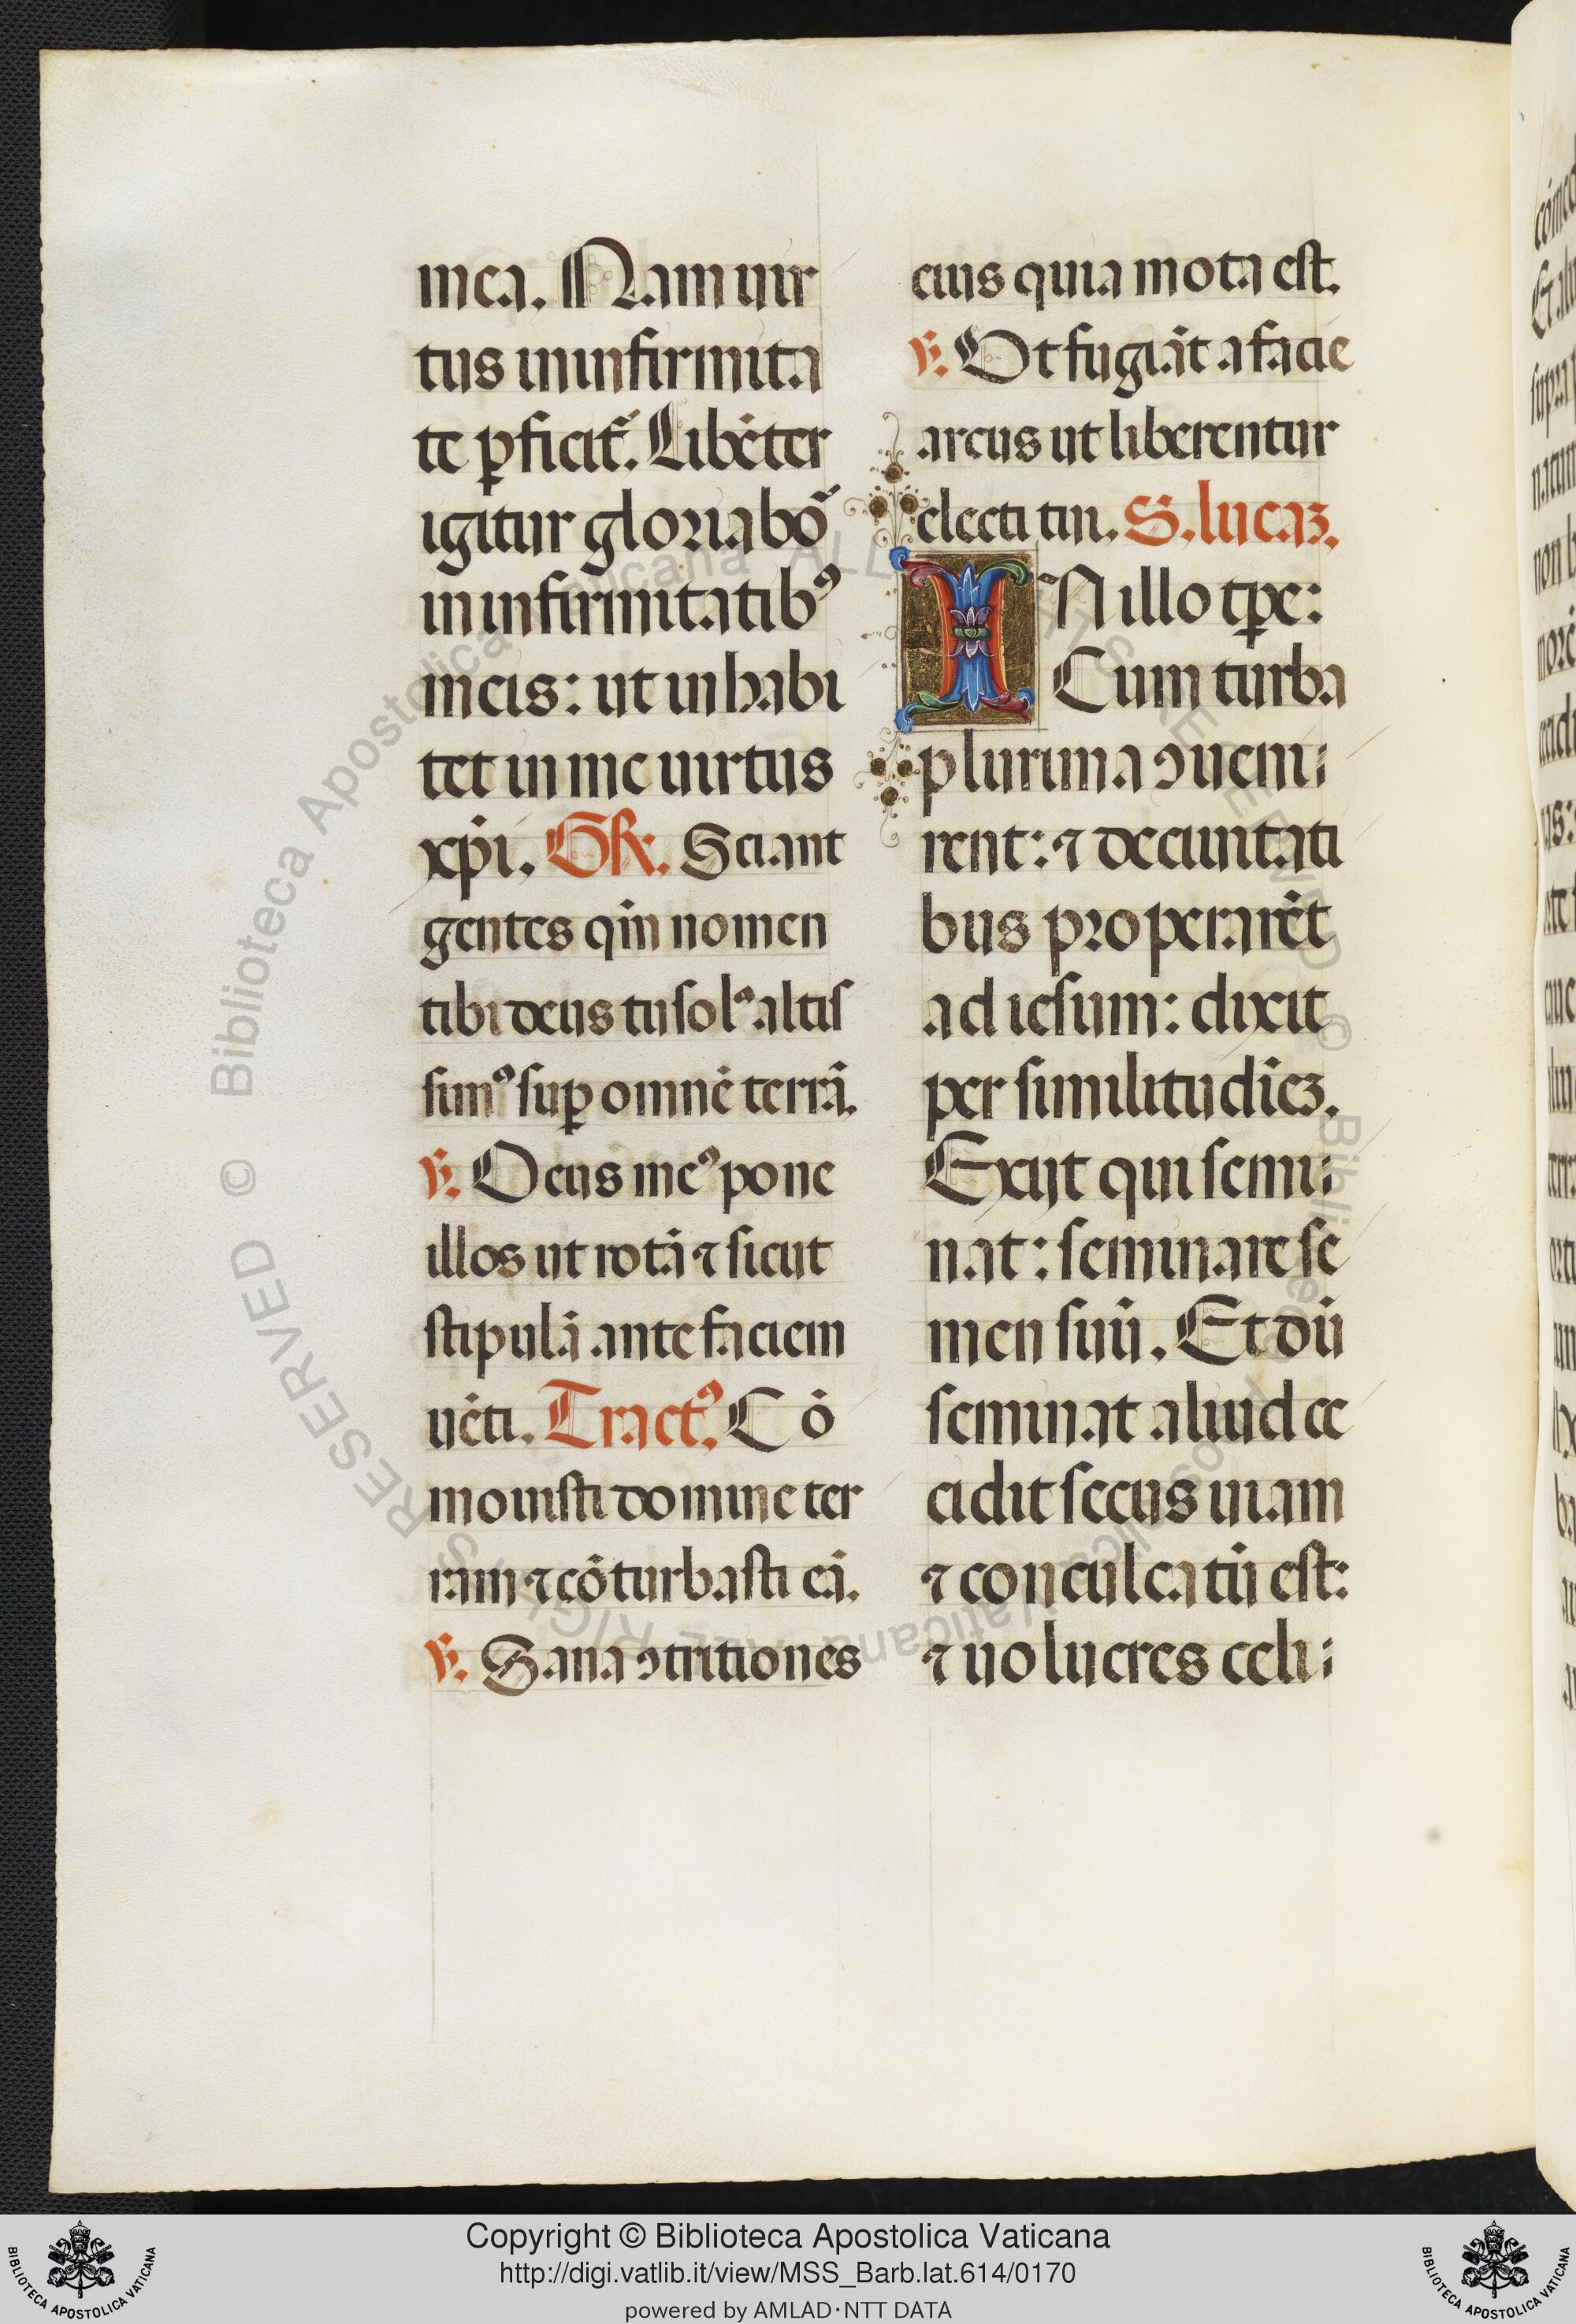 mea. Nam uir
tus in infirmita
te ꝑficit᷑. Libēter
igitur gloriabo᷑
in infirmitatibꝰ
meis: ut inhabi
tet in me uirtus
xp̄i. GR. Sciant
gentes qm̄ nomen
tibi deus tu solꝰ altis
simꝰ suꝑ omnē terrā.
℣. Deus meꝰ pone
illos ut rotā ⁊ sicut
stipulā ante faciem
uēti. Tractꝰ. Cō
mouisti domine ter
ram ⁊ cōturbasti eā.
℣. Sana ꝯtritiones
eius quia mota est.
℣. Ut fugiāt a facie
arcus ut liberentur
electi tui. S. lucaꝫ.
IN illo tꝑe:
Cum turba
plurima ꝯueni
rent: ⁊ de ciuitati
bus properarēt
ad iesum: dixit
per similitudīeꝫ.
Exijt qui semi
nat: seminare se
men suū. Et dū
seminat aliud ce
cidit secus uiam
⁊ conculcatū est:
⁊ uolucres celi
© Biblioteca Apostolica Vaticana ALL RIGHTS RESERVED
Copyright © Biblioteca Apostolica Vaticana
http://digi.vatlib.it/view/MSS_Barb.lat.614/0170
powered by AMLAD·NTT DATA
BIBLIOTECA APOSTOLICA VATICANA
BIBLIOTECA APOSTOLICA VATICANA